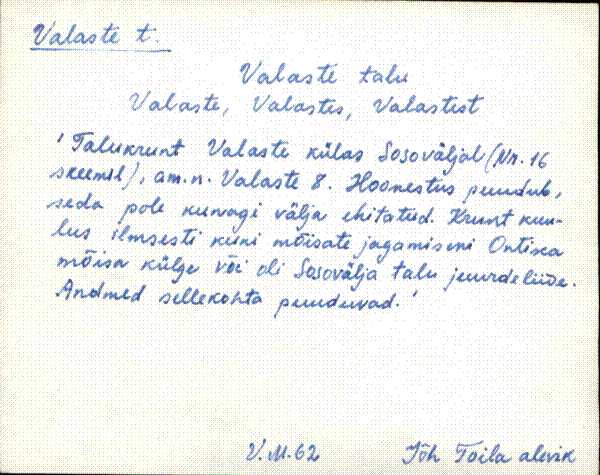 Valaste t.
Valaste talu
Valaste, Valastes, Valastest
' Talukrunt Valaste külas Sosoväljal (Nr. 16
skeemil), am.n. Valaste 8. Hoonestus puudub,
seda pole kunagi välja ehitatud. Krunt kuu-
lus ilmsesti kuni mõisate jagamiseni Ontika
mõisa külge või oli Sosovälja talu juurdeliide.
Andmed sellekohta puuduvad.'
V.M.62 Jõh Toila alevik